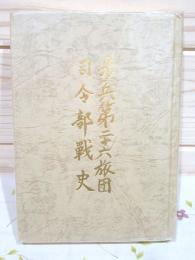 歩兵第二十六旅団
司令部戦史